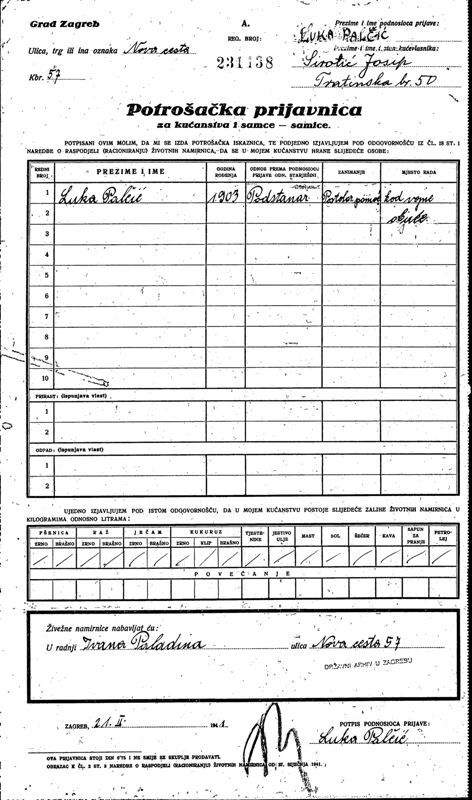 Grad Zagreb
Ulica, trg ili ina oznaka Nova cesta
Kbr. 57
A.
REG. BROJ:
231138
Prezime i ime podnosioca prijave:
LUKA PALČIĆ
Prezime i ime, i stan kućevlasnika:
Sirotić Josip
Tratinska br. 50
Potrošačka prijavnica
za kućanstva i samce — samice.
POTPISANI OVIM MOLIM, DA MI SE IZDA POTROŠAČKA ISKAZNICA, TE PODJEDNO IZJAVLJUJEM POD ODGOVORNOŠĆU IZ ČL. 18 ST. 1
NAREDBE O RASPODJELI (RACIONIRANJU) ŽIVOTNIH NAMIRNICA, DA SE U MOJEM KUĆANSTVU HRANE SLIJEDEĆE OSOBE:
REDNI BROJ PREZIME I IME GODINA ROĐENJA ODNOS PREMA PODNOSIOCU PRIJAVE ODN. STARJEŠINI ZANIMANJE MJESTO RADA
1 Luka Palčić 1903 Podstanar kod vojne
2
3
4
5
6
7
8
9
10
PRIRAST: (Ispunjava vlast)
1
2
ODPAD: (Ispunjava vlast)
1
2
UJEDNO IZJAVLJUJEM POD ISTOM ODGOVORNOŠĆU, DA U MOJEM KUĆANSTVU POSTOJE SLIJEDEĆE ZALIHE ŽIVOTNIH NAMIRNICA U
KILOGRAMIMA ODNOSNO LITRAMA:
PŠENICA RAŽ JEČAM KUKURUZ TJESTENINE JESTIVO ULJE MAST SOL ŠEĆER KAVA SAPUN ZA PRANJE PETROLEJ
ZRNO BRAŠNO ZRNO BRAŠNO ZRNO BRAŠNO ZRNO KLIP BRAŠNO
POVEĆANJE
Živežne namirnice nabavljat ću:
U radnji Ivana Paladina ulica Nova cesta 57
DRŽAVNI ARHIV U ZAGREBU
ZAGREB, 21. II. 1941.
POTPIS PODNOSIOCA PRIJAVE:
Luka Palčić
OVA PRIJAVNICA STOJI DIN 0'75 I NE SMIJE SE SKUPLJE PRODAVATI.
OBRAZAC K ČL. 2 ST. 2 NAREDBE O RASPODJELI (RACIONIRANJU) ŽIVOTNIH NAMIRNICA OD SIJEČNJA 1941.